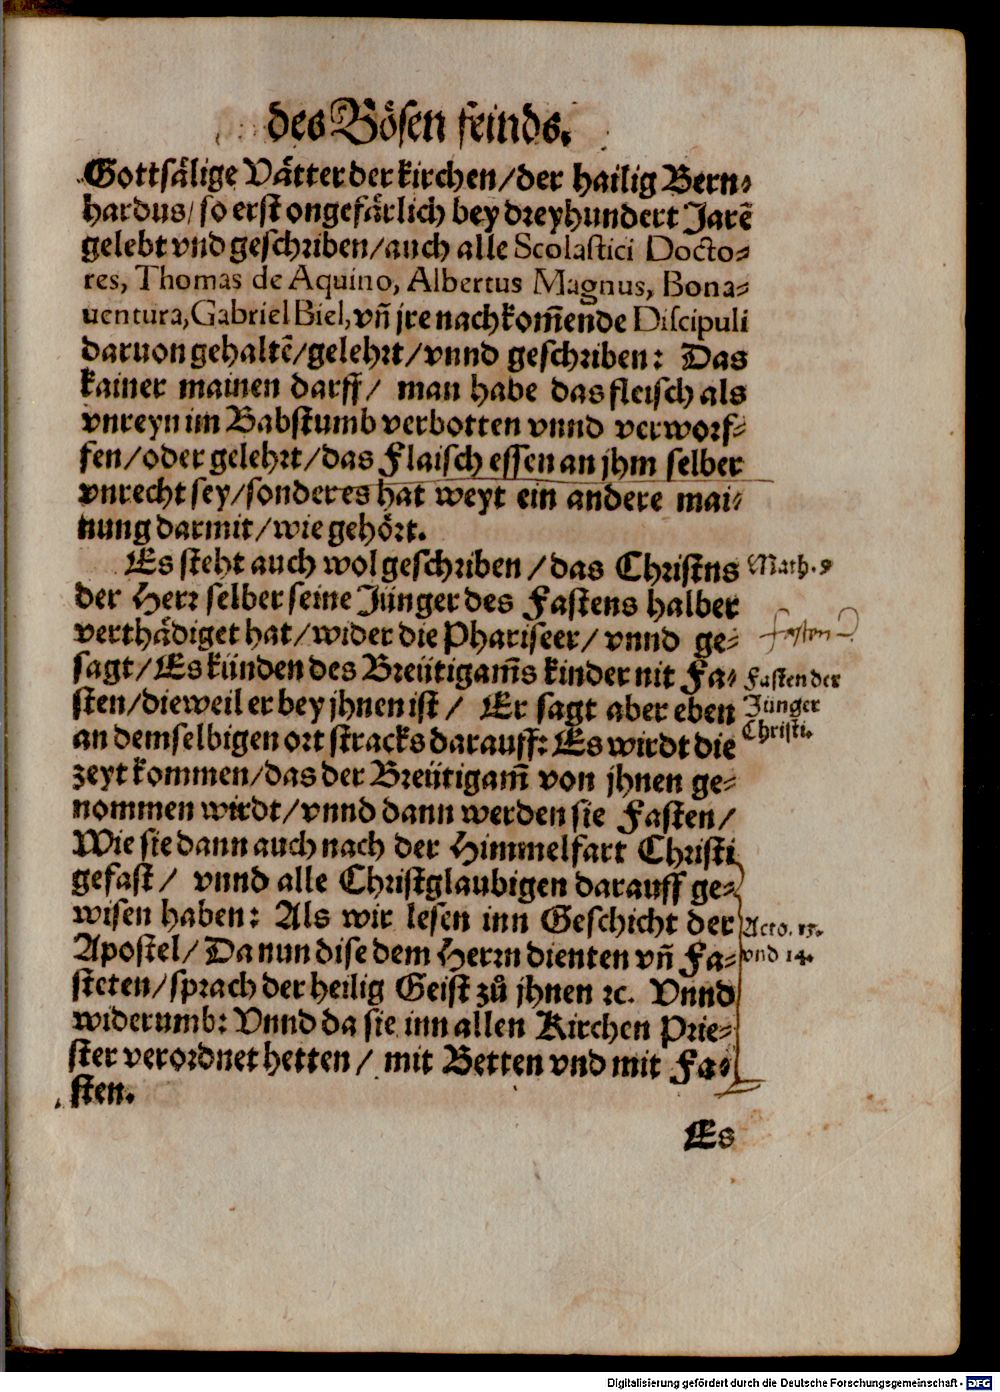 des Bösen feinds.
Gottsälige Vätter der kirchen/der hailig Bern-
hardus/so erst ongefärlich bey dreyhundert Jarē
gelebt vnd geschriben/auch alle Scolastici Docto-
res, Thomas de Aquino, Albertus Magnus, Bona-
uentura, Gabriel Biel, vñ jre nachkom̃ende Discipuli
daruon gehaltē/gelehrt/vnnd geschriben: Das
kainer mainen darff/ man habe das fleisch als
vnreyn im Babstumb verbotten vnnd verworf-
fen/oder gelehrt/das Flaisch essen an jhm selber
vnrecht sey/sonder es hat weyt ein andere mai-
nung darmit/wie gehört.
Es steht auch wol geschriben/das Christns Math. 9
der Herr selber seine Jünger des Fastens halber
verthädiget hat/wider die Phariseer/ vnnd ge- fasten
sagt/Es künden des Breütigam̃s kinder nit Fa- Fasten der
sten/dieweil er bey jhnen ist/ Er sagt aber eben Jünger
an demselbigen ort stracks darauff: Es wirdt die Christi.
zeyt kommen/das der Breütigam̃ von jhnen ge-
nommen wirdt/vnnd dann werden sie Fasten/
Wie sie dann auch nach der Himmelfart Christi
gefast/ vnnd alle Christglaubigen darauff ge-
wisen haben: Als wir lesen inn Geschicht der Acto. 13.
Apostel/Da nun dise dem Herrn dienten vñ Fa- vnd 14.
steten/sprach der heilig Geist zů jhnen ꝛc. Vnnd
widerumb: Vnnd da sie inn allen Kirchen Prie-
ster verordnet hetten/ mit Betten vnd mit Fa-
sten.
Es
Digitalisierung gefördert durch die Deutsche Forschungsgemeinschaft - DFG